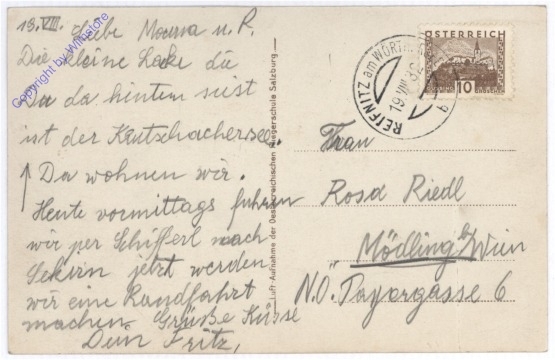 19.VIII. Liebe Mama u. R.
Die kleine Lake die
Du da hinten siest
ist der Keutschachersee.
↑ Da wohnen wir.
Heute vormittags fuhren
wir per Schifferl nach
Sekirn jetzt werden
wir eine Rundfahrt
machen Grüße Küsse
Dein Fritz,
Luft-Aufnahme der Oesterreichischen Fliegerschule Salzburg
REIFNITZ am WÖRTH
19.VIII.32
ÖSTERREICH
10
Frau
Rosa Riedl
Mödling b/Wien
N.Ö. Payergasse 6
Copyright by Wilnstore